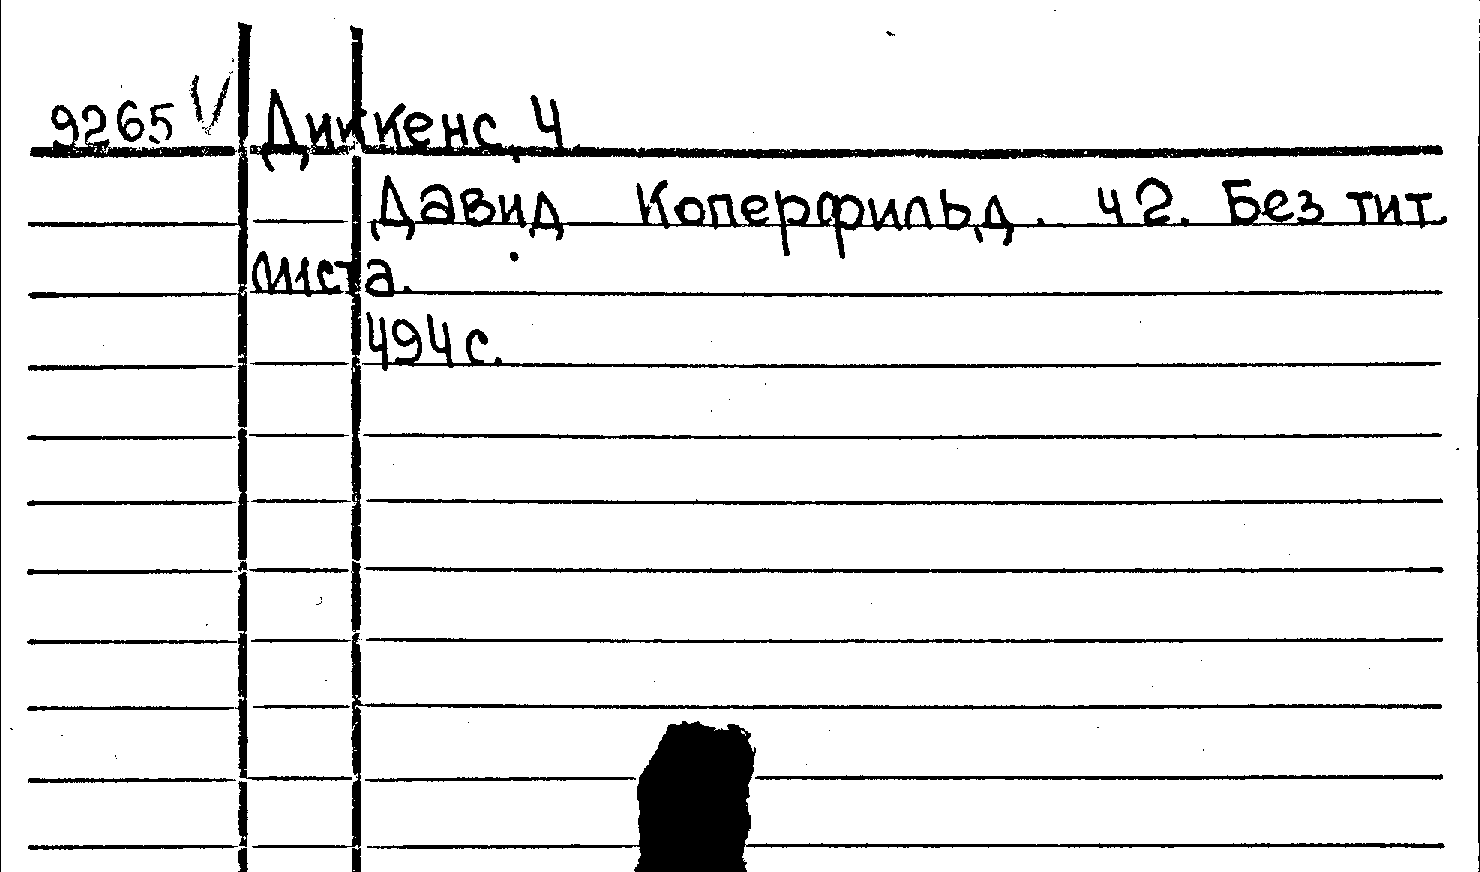 9265 V Диккенс, Ч.
Давид Коперфильд. Ч2. Без тит.
листа.
494 с.